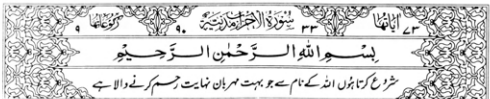 اٰیَاتُهَا ٧٣ ٣٣ سُوْرَةُ الْاَحْزَابِ مَدَنِيَّةٌ ٩٠ رُكُوْعَاتُهَا ٩
بِسْمِ اللهِ الرَّحْمٰنِ الرَّحِيْمِ
شروع کرتا ہوں اللہ کے نام سے جو بہت مہربان نہایت رحم کرنے والا ہے